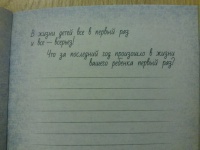 В жизни детей все в первый раз
и все — всерьез!
Что за последний год произошло в жизни
вашего ребенка первый раз?